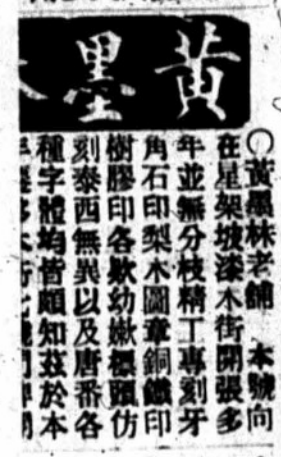 黃墨林
〇黃墨林老舖　本號向
在星架坡漆木街開張多
年並無分枝精工專刻牙
角石印梨木圖章銅鐵印
樹膠印各欵幼嫩標頭仿
刻泰西無異以及唐番各
種字體均皆頗知茲於本